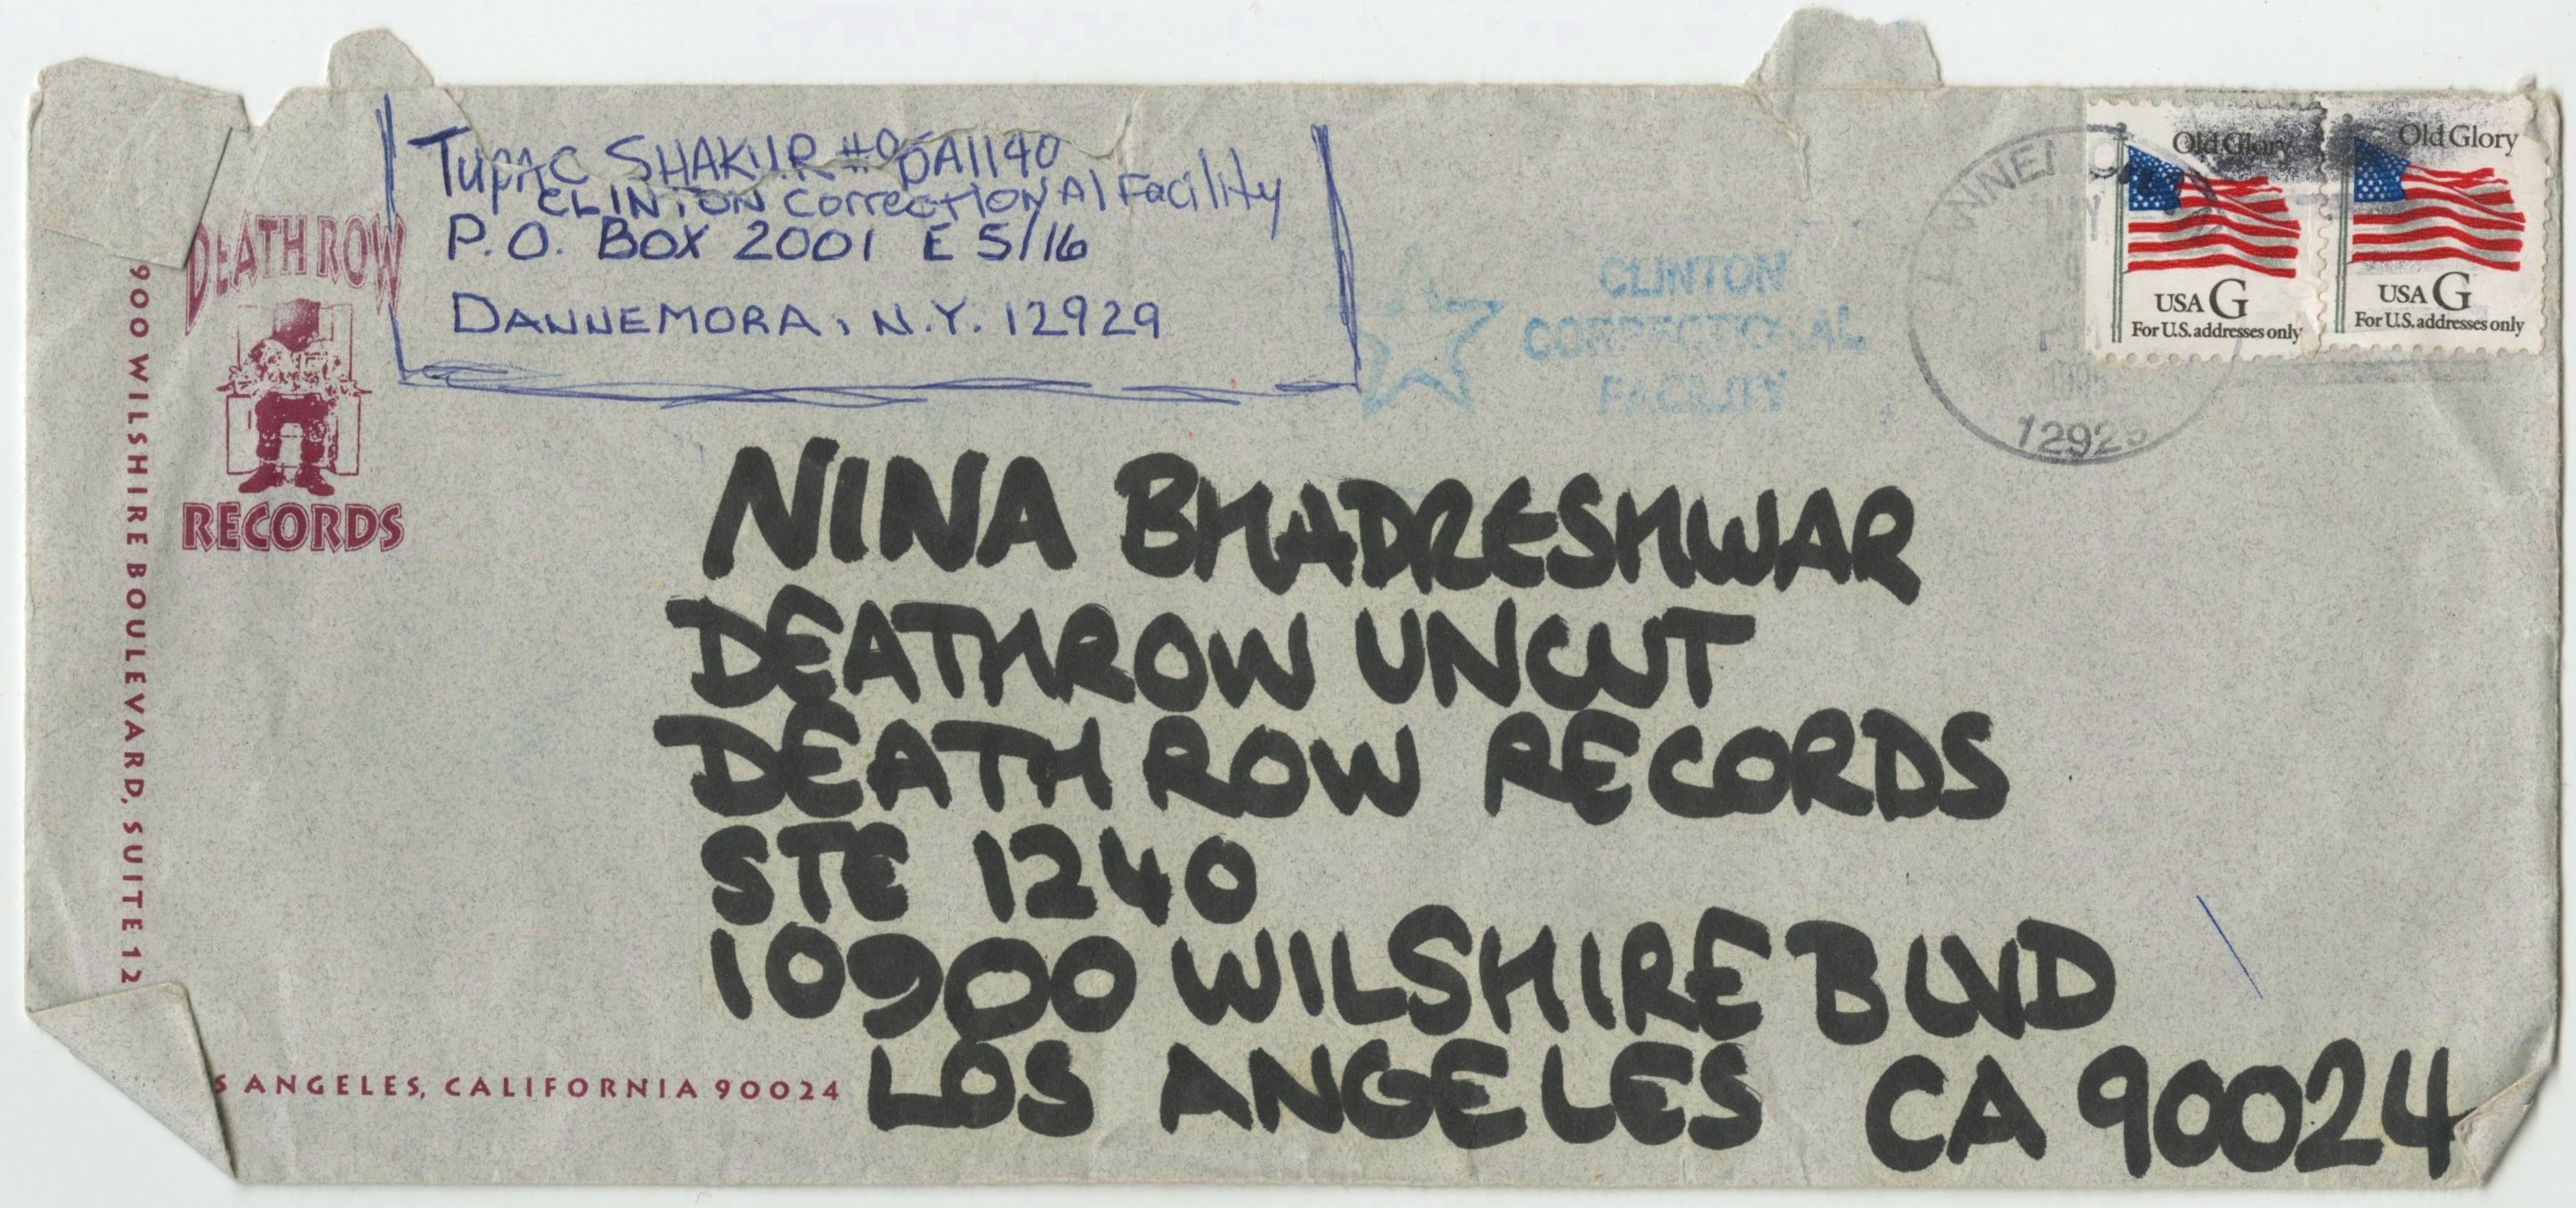 TUPAC SHAKUR #
CLINTON Correctional Facility
P.O. BOX 2001 E 5/16
DANNEMORA, N.Y. 12929
DEATH ROW
RECORDS
900 WILSHIRE BOULEVARD, SUITE 12
CLINTON
CORRECTIONAL
FACILITY
12929
Old Glory
USA G
For U.S. addresses only
Old Glory
USA G
For U.S. addresses only
NINA BHADRESHWAR
DEATHROW UNCUT
DEATH ROW RECORDS
STE 1240
10900 WILSHIRE BLVD
LOS ANGELES CA 90024
S ANGELES, CALIFORNIA 90024